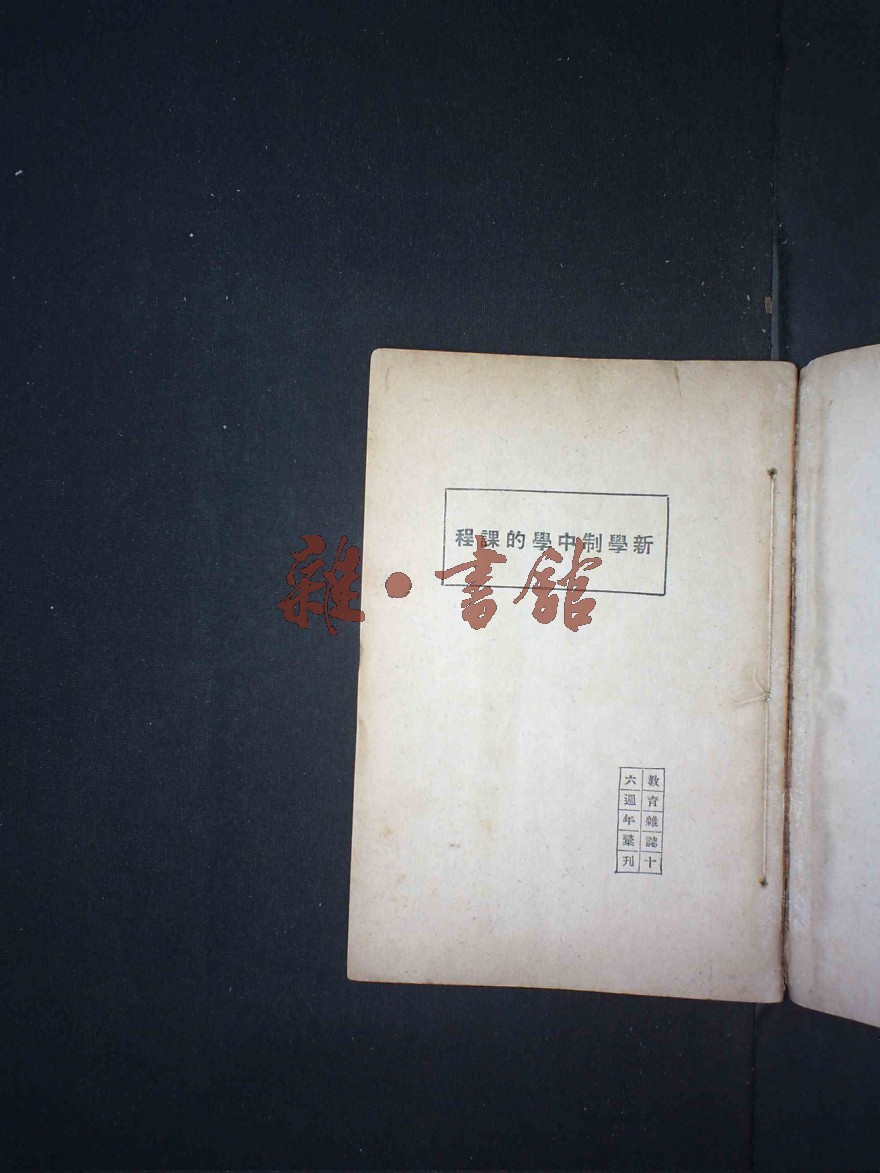 新學制中學的課程
雜·書館
教育雜誌十
六週年彙刊